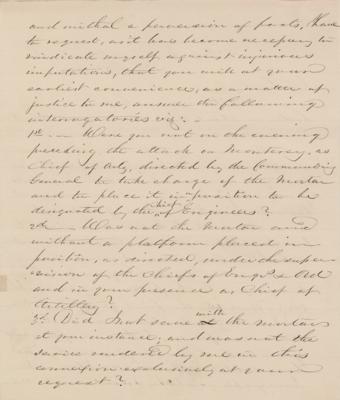 and withal a perversion of facts, I have
to request, as it has become necessary to
vindicate myself against injurious
imputations, that you will at your
earliest convenience, as a matter of
justice to me, answer the following
interrogatories viz: -
1st - Were you not on the evening
preceding the attack on Monterey, as
Chief of Arty, directed by the Commanding
General to take charge of the Mortar
and to place it in position to be
designated by the Chief of Engineers?
2d - Was not the Mortar and
without a platform placed in
position, as directed, under the super-
vision of the Chiefs of Engrs & Art
and in your presence as Chief of
Artillery?
3d Did I not serve with the mortar
at your instance; and was not the
service rendered by me in this
connexion exclusively at your
request?